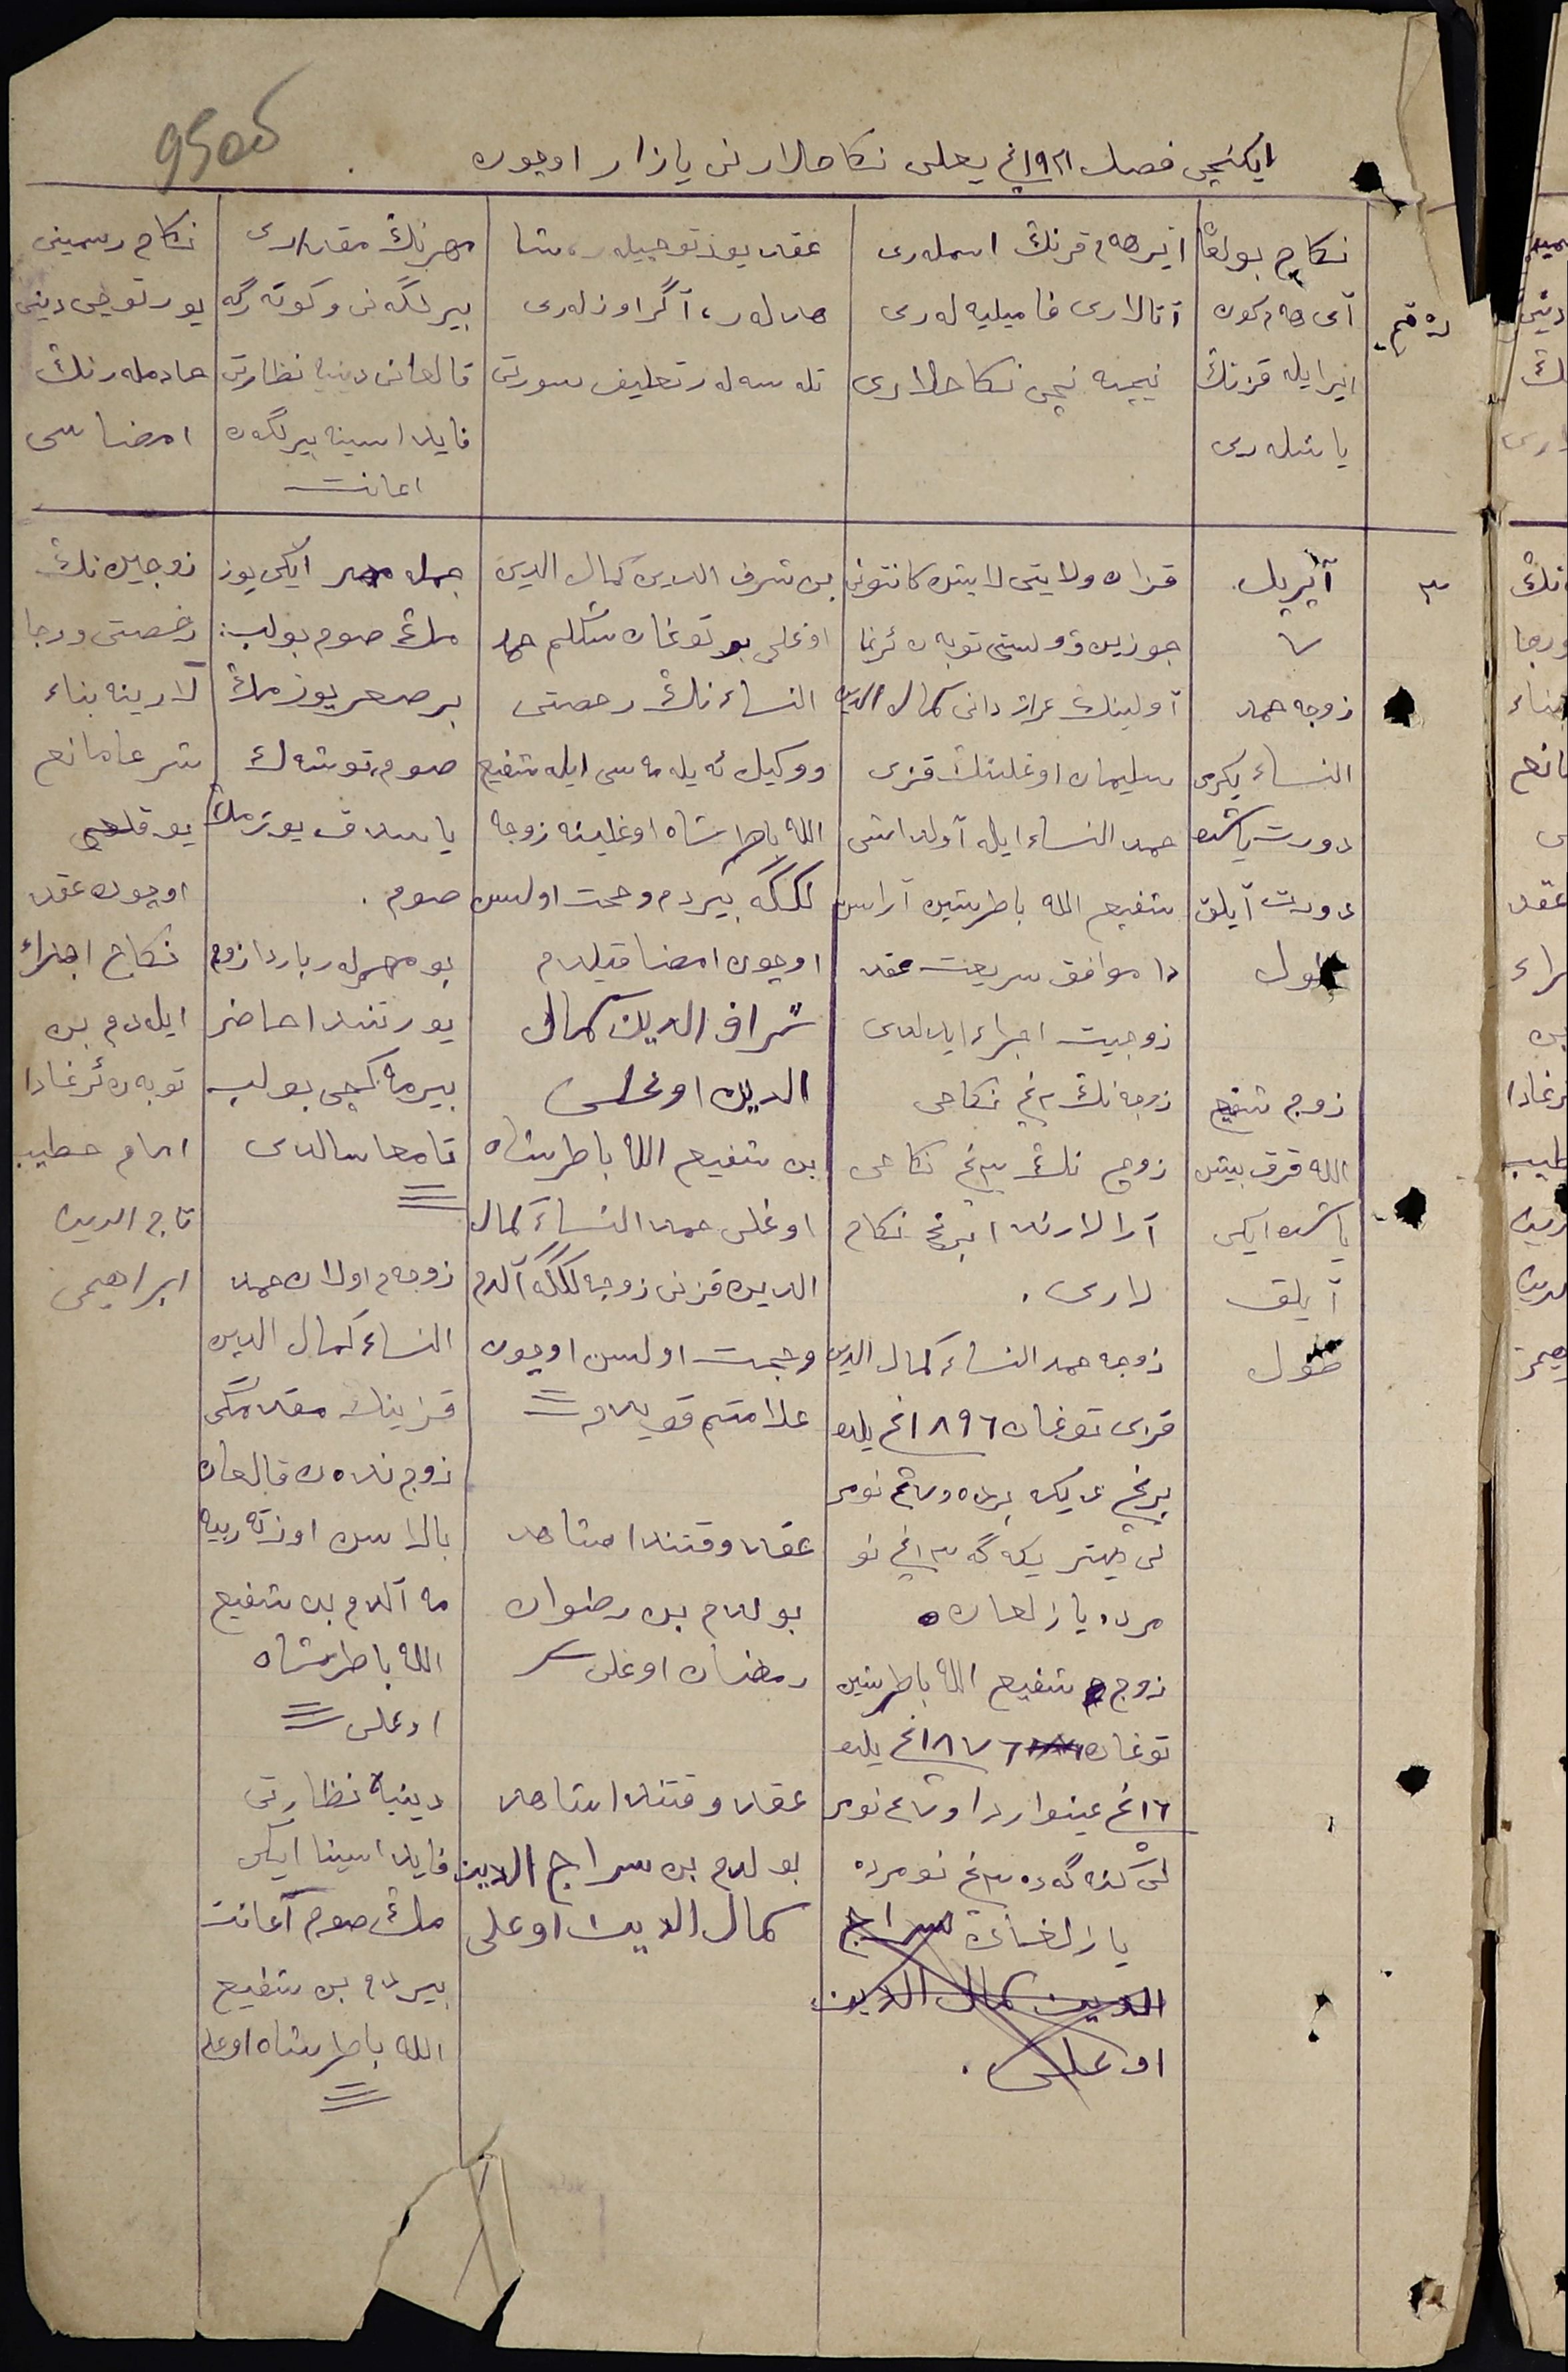 950б
ایکنچی فصل ١٩٢١نچی یعلی نکاحلارنی یازار اوچون
رقم
نکاح بولغان
آی هم کون
ایر ایله قزنڭ
یاشلەری
ایر هم قزنڭ اسملەری
آتالاری فامیلیه لەری
نیچه نچی نکاحلاری
عقد یوزتوچیلەر، شا
هدلەر، آگر اوزلەری
تله سه لەر تعلیف صورتی
مهرنڭ مقداری
بیرلگەنی و کوته رگه
قالغانی دینیه نظارتی
فایداسینه بیرلگەن
اعانت
نکاح رسمینی
یورتوچی دینی
خادملەرنڭ
امضاسی
٣
آپریل
٧
زوجه حمد
النساء یگرمی
دورت یاشده
دورت آیلق
طول
زوج شفیع
الله قرق بیش
یاشده ایکی
آیلق
طول
قزان ولایتی لایش کانتونی
آولینڭ کمال الدین
سلیمان اوغلینڭ قزی
حمد النساء ایله آولداشی
شفیع الله باطرشین آراسن
دا موافق شریعت عقد
زوجیت اجراء ایدلدی
زوجه نڭ ٢نچی نکاحی
زوج نڭ ٣نچی نکاحی
آرالارندا برنچی نکاح
لاری.
زوجه حمد النساء کمال الدین
قزی توغان ١٨٩٦نچی یلده
مرده یازلغان
زوج شفیع الله باطرشین
توغان ١٨٧٦نچی یلده
١٦نچی غینواردا نومر
لی کنەگەده ٣نچی نومرده
یازلغان سراج
الدین کمال الدین
اوغلی.
بن شرف الدین کمال الدین
اوغلی بو توغان سڭلم حمد
النساءنڭ رخصتی
و وکیل ئه یله مه سی ایله شفیع
الله باطرشاه اوغلینه زوجه
لککه بیردم و حجت اولسن
اوچون امضا قیلدم
شراف الدین کمال
الدین اوغلی
بن شفیع الله باطرشاه
اوغلی حمد النساء کمال
الدین قزنی زوجه لککه آلدم
و حجت اولسن اوچون
علامتم قویدم
عقد وقتندا شاهد
بولدم بن رضوان
رمضان اوغلی
عقد وقتندا شاهد
بولدم بن سراج الدین
کمال الدین اوغلی
جمله مهر ایکی یوز
مڭ صوم بولب:
بر صغر یوز مڭ
صوم، توشەك
یاسدق یوز مڭ
صوم.
بو مهرلەر باردا زوج
یورتندا حاضر
بیرمه کچی بولب
تامغا سالدی
زوجه م اولان حمد
النساء کمال الدین
قزینڭ مقدمگی
زوج ندەن قالغان
بالاسن اوز تەربیه
مه آلدم بن شفیع
الله باطرشاه
اوغلی
دینیه نظارتی
فایداسینا ایکی
مڭ صوم اعانت
بیردم بن شفیع
الله باطرشاه اوغلی
زوجین نڭ
رخصتی و رجا
لارینه بناء
شرعا مانع
یوقلغی
اوچون عقد
نکاح اجراء
ایلەدم بن
امام خطیب
تاج الدین
ابراهیمی